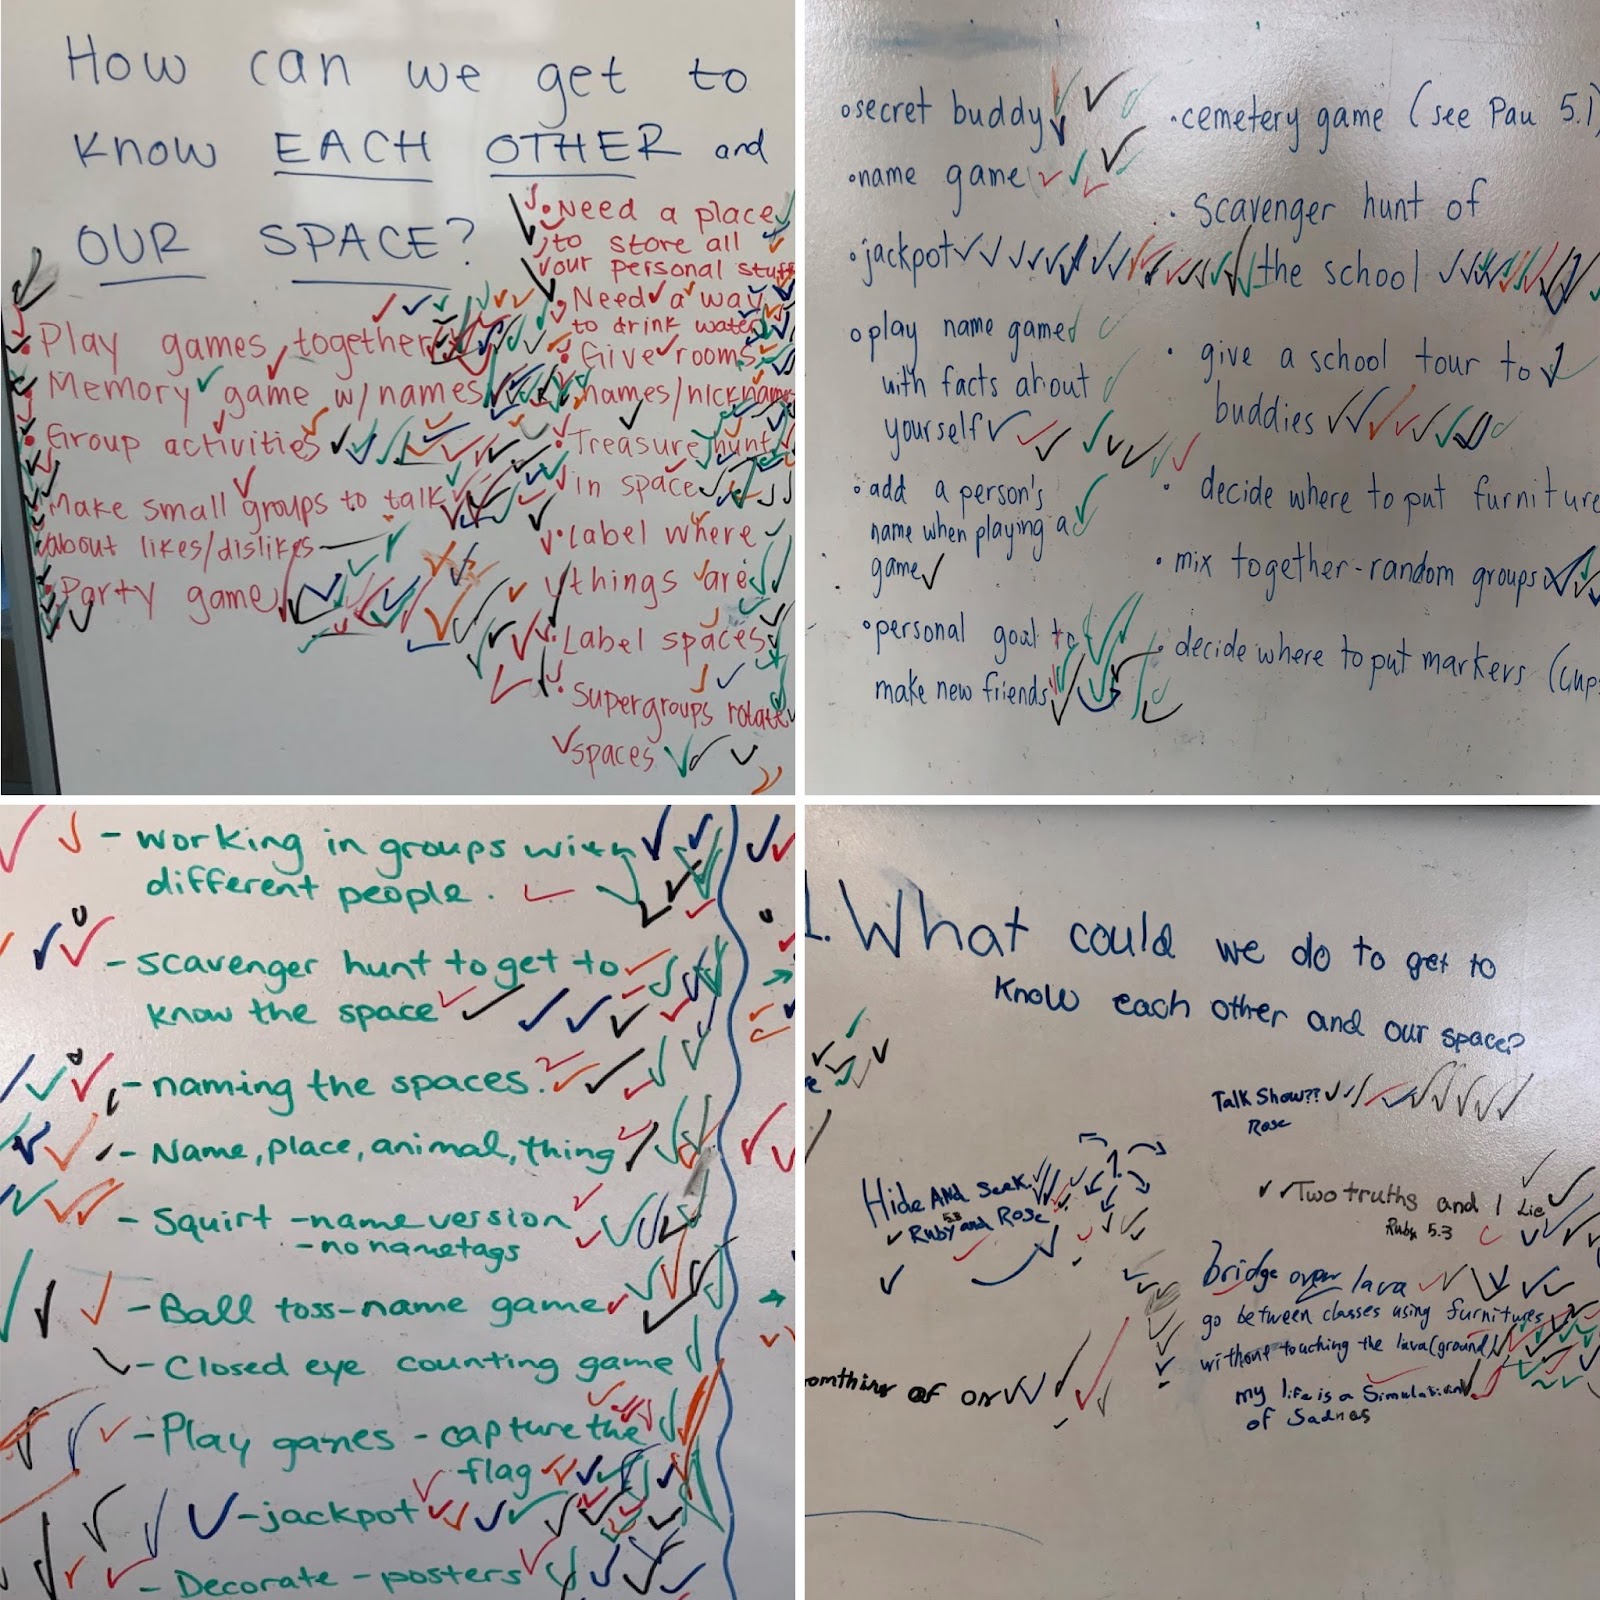 How can we get to
know EACH OTHER and
OUR SPACE?
• Play games together
• Memory game w/names
• Group activities
• Make small groups to talk
about likes/dislikes
• Party game
• Need a place
to store all
our personal stuff
• Need a way
to drink water
• Give rooms
names/nicknames
• Treasure hunt
in space
• Label where
things are
• Label spaces
• Supergroups rotate
spaces
• secret buddy
• name game
• jackpot
• play name game
with facts about
yourself
• add a person's
name when playing a
game
• personal goal to
make new friends
• cemetery game (see Pau 5.1)
• scavenger hunt of
the school
• give a school tour to
buddies
• decide where to put furniture
• mix together-random groups
• decide where to put markers (cups
- working in groups with
different people.
- scavenger hunt to get to
know the space
- naming the spaces.
- Name, place, animal, thing
- Squirt - name version
- no nametags
- Ball toss-name game
- Closed eye counting game
- Play games - capture the
flag
- jackpot
- Decorate - posters
1. What could we do to get to
know each other and our space?
Talk Show??
Rose
Hide AND Seek
5.3
Ruby and Rose
Two truths and 1 Lie
Ruby 5.3
bridge over lava
go between classes using furnitures
without touching the lava (ground)
my life is a Simulation
of Sadnes